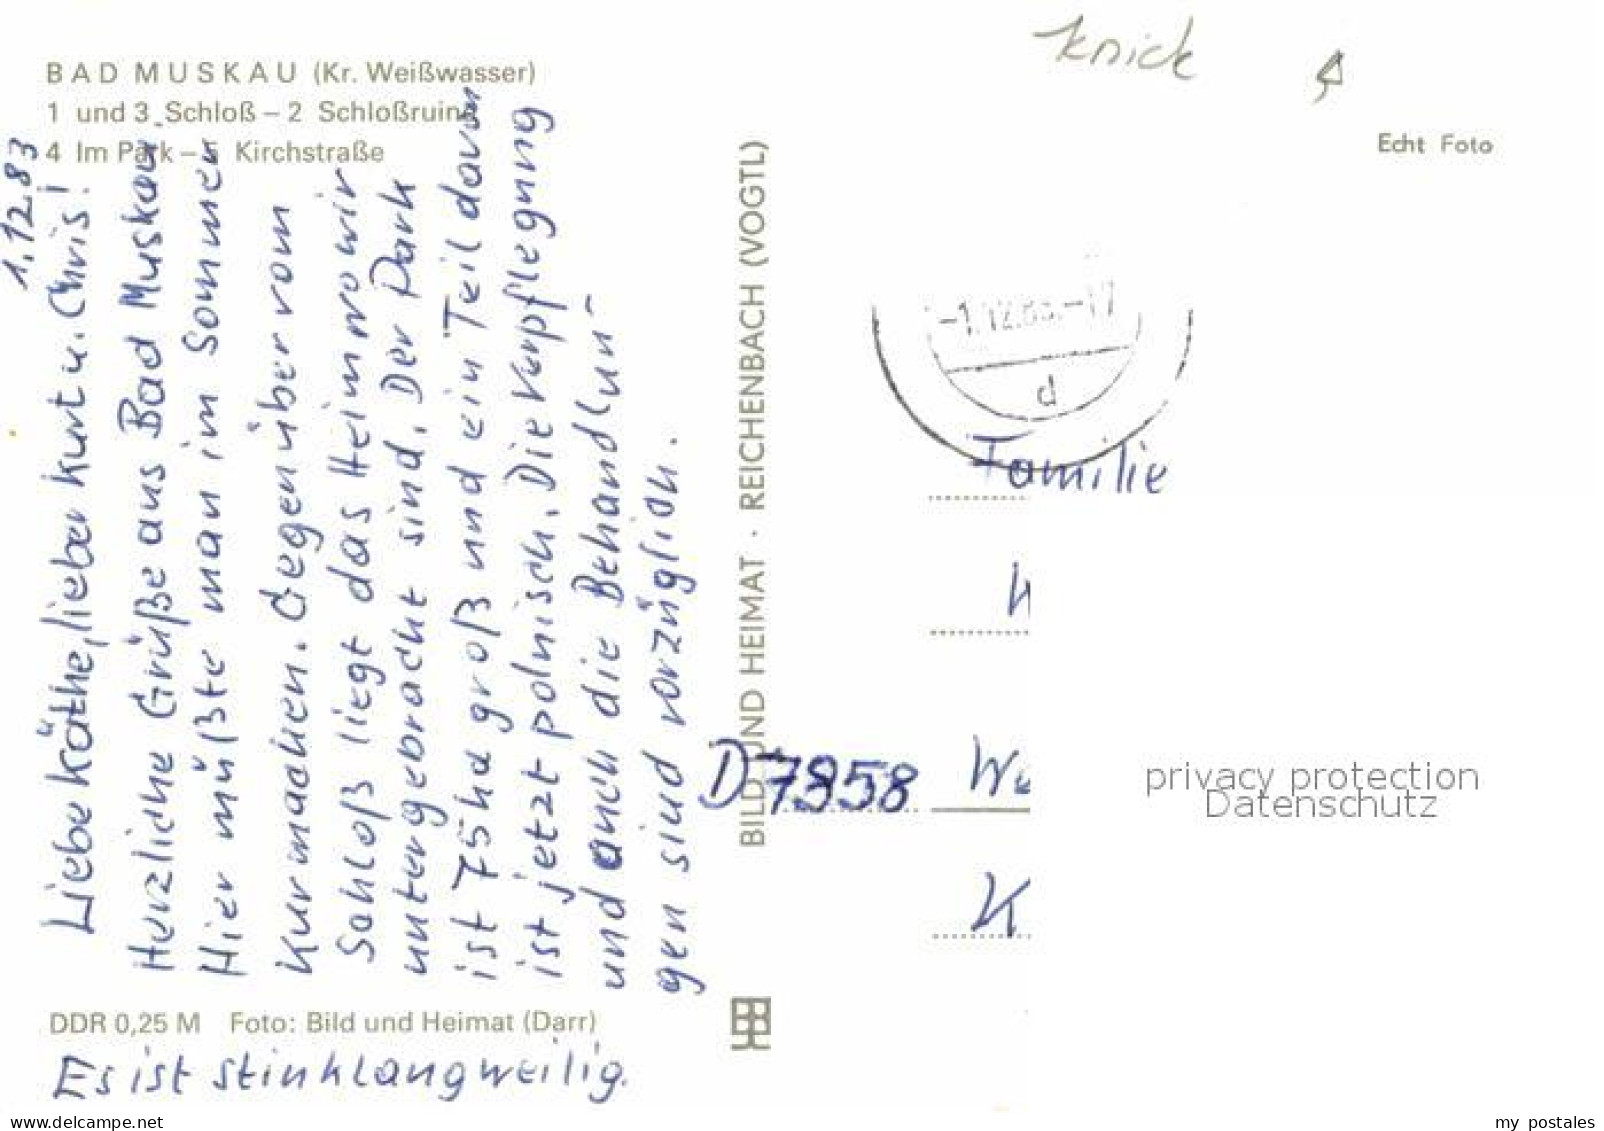 BAD MUSKAU (Kr. Weißwasser)
1 und 3 Schloß – 2 Schloßruine
4 Im Park – 5 Kirchstraße
1.12.83
Liebe Käthe, lieber Kurt u. Chris!
Herzliche Grüße aus Bad Muskau
Hier müßte man im Sommer
Kur machen. Gegenüber vom
Schloß liegt das Heim wo wir
untergebracht sind. Der Park
ist 75ha groß und ein Teil davon
ist jetzt polnisch. Die Verpflegung
und auch die Behandlun-
gen sind vorzüglich.
DDR 0,25 M Foto: Bild und Heimat (Darr)
Es ist stinklangweilig.
BILD UND HEIMAT · REICHENBACH (VOGTL)
Knick
Echt Foto
-1.12.83.-17
d
Familie
D-7958 We
K
privacy protection
Datenschutz
www.delcampe.net
my_postales